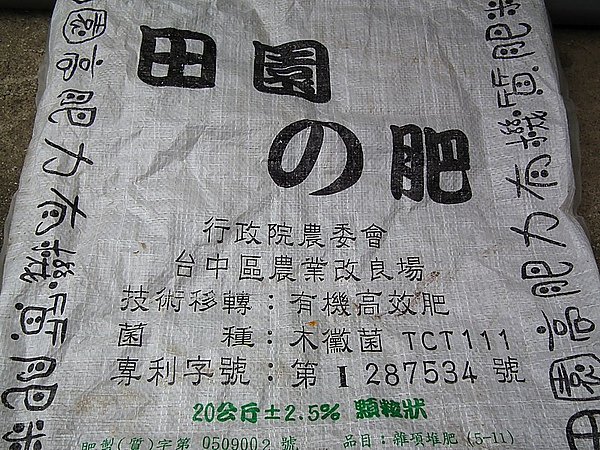 田園
の肥
行政院農委會
台中區農業改良場
技術移轉：有機高效肥
菌種：木黴菌 TCT111
專利字號：第 I 287534 號
20公斤±2.5% 顆粒狀
肥製(質)字第 0509002 號 品目：雜項堆肥 (5-11)
園高肥力有機質肥料
田園高肥力有機質肥料